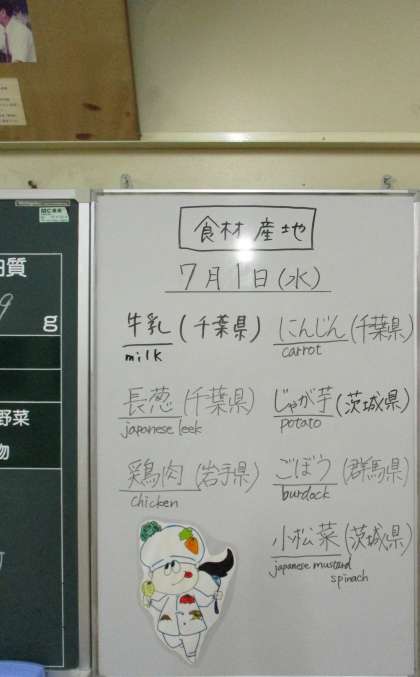 食材産地
7月1日(水)
牛乳(千葉県)
milk
にんじん(千葉県)
carrot
長葱(千葉県)
japanese leek
じゃが芋(茨城県)
potato
鶏肉(岩手県)
chicken
ごぼう(群馬県)
burdock
小松菜(茨城県)
japanese mustard
spinach
質
9 g
野菜
物